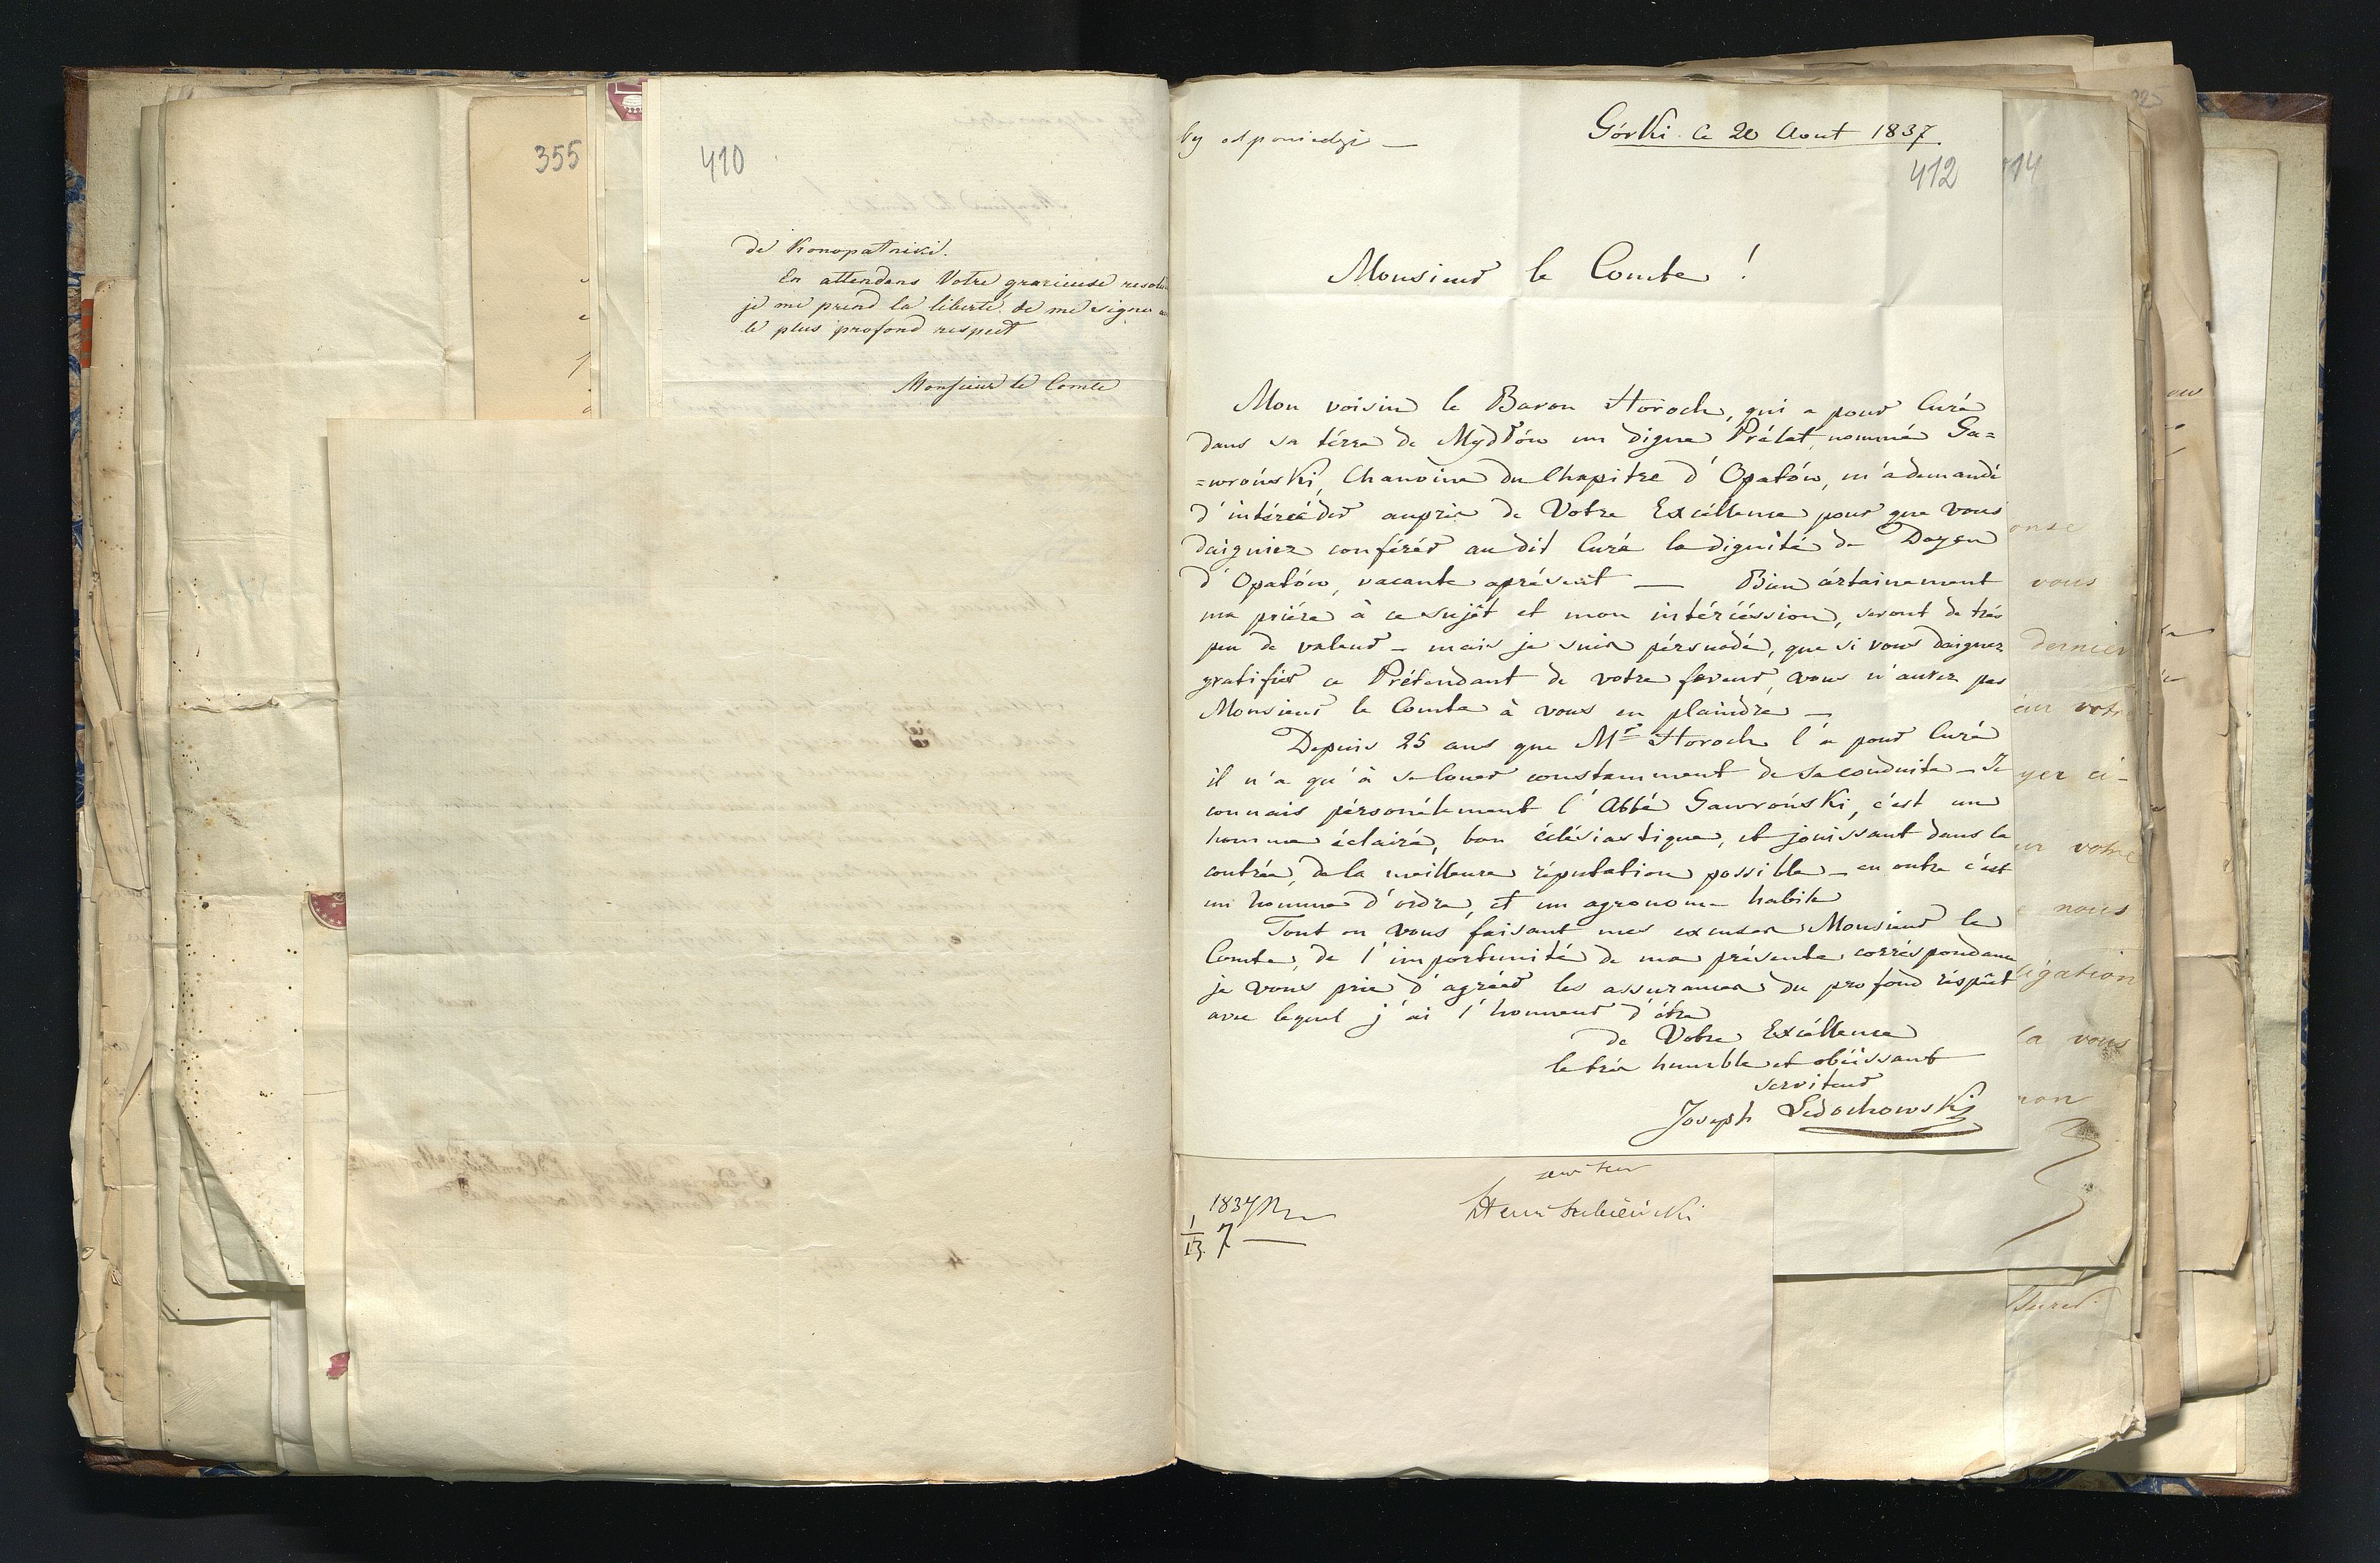 355
410
de Konopatniki.
En attendans Votre gracieuse
je me prend la liberté de me signer
le plus profond respect
Monsieur le Comte
Górki le 20 Aout 1837
412
14
Monsieur le Comte !
Mon voisin le Baron Horoch, qui a pour Curé
dans sa térre de Mydłów un digne Prélat nommé Ga=
=wroński, Chanoine du Chapitre d'Opatów, m'a demandé
d'intércéder auprés de Votre Excéllence pour que vous
daigniez conférér au dit Curé la dignité de Doyen
d'Opatów, vacante aprésent — Bien cértainement
ma priére à ce sujèt et mon intércéssion, seront de trés
peu de valeur – mais je suis pérsuadé, que si vous daignez
gratifier ce Prétendant de votre faveur, vous n'aurez pas
Monsieur le Comte à vous en plaindre —
Depuis 25 ans que Mr Horoch l'a pour Curé
il n'a qu'à se louer constamment de sa conduite – Je
connais pérsonélement l'Abbé Gawroński, c'est un
homme éclairé, bon éclésiastique, et jouissant dans la
contrée, de la meilleure réputation possible – en outre c'est
un homme d'ordre, et un agronome habile
Tout en vous faisant mes excuses Monsieur le
Comte, de l'importunité de ma présente corréspondance
je vous prie d'agréér les assurances du profond réspèct
avec lequel j'ai l'honneur d'être
de Votre Excéllence
le trés humble et obéissant
serviteur
Joseph Ledochowski
onse
vous
dernier
votre
yer ci-
ur votre
nous
ligation
la vous
1837
1/13 7
Henri Łubieński